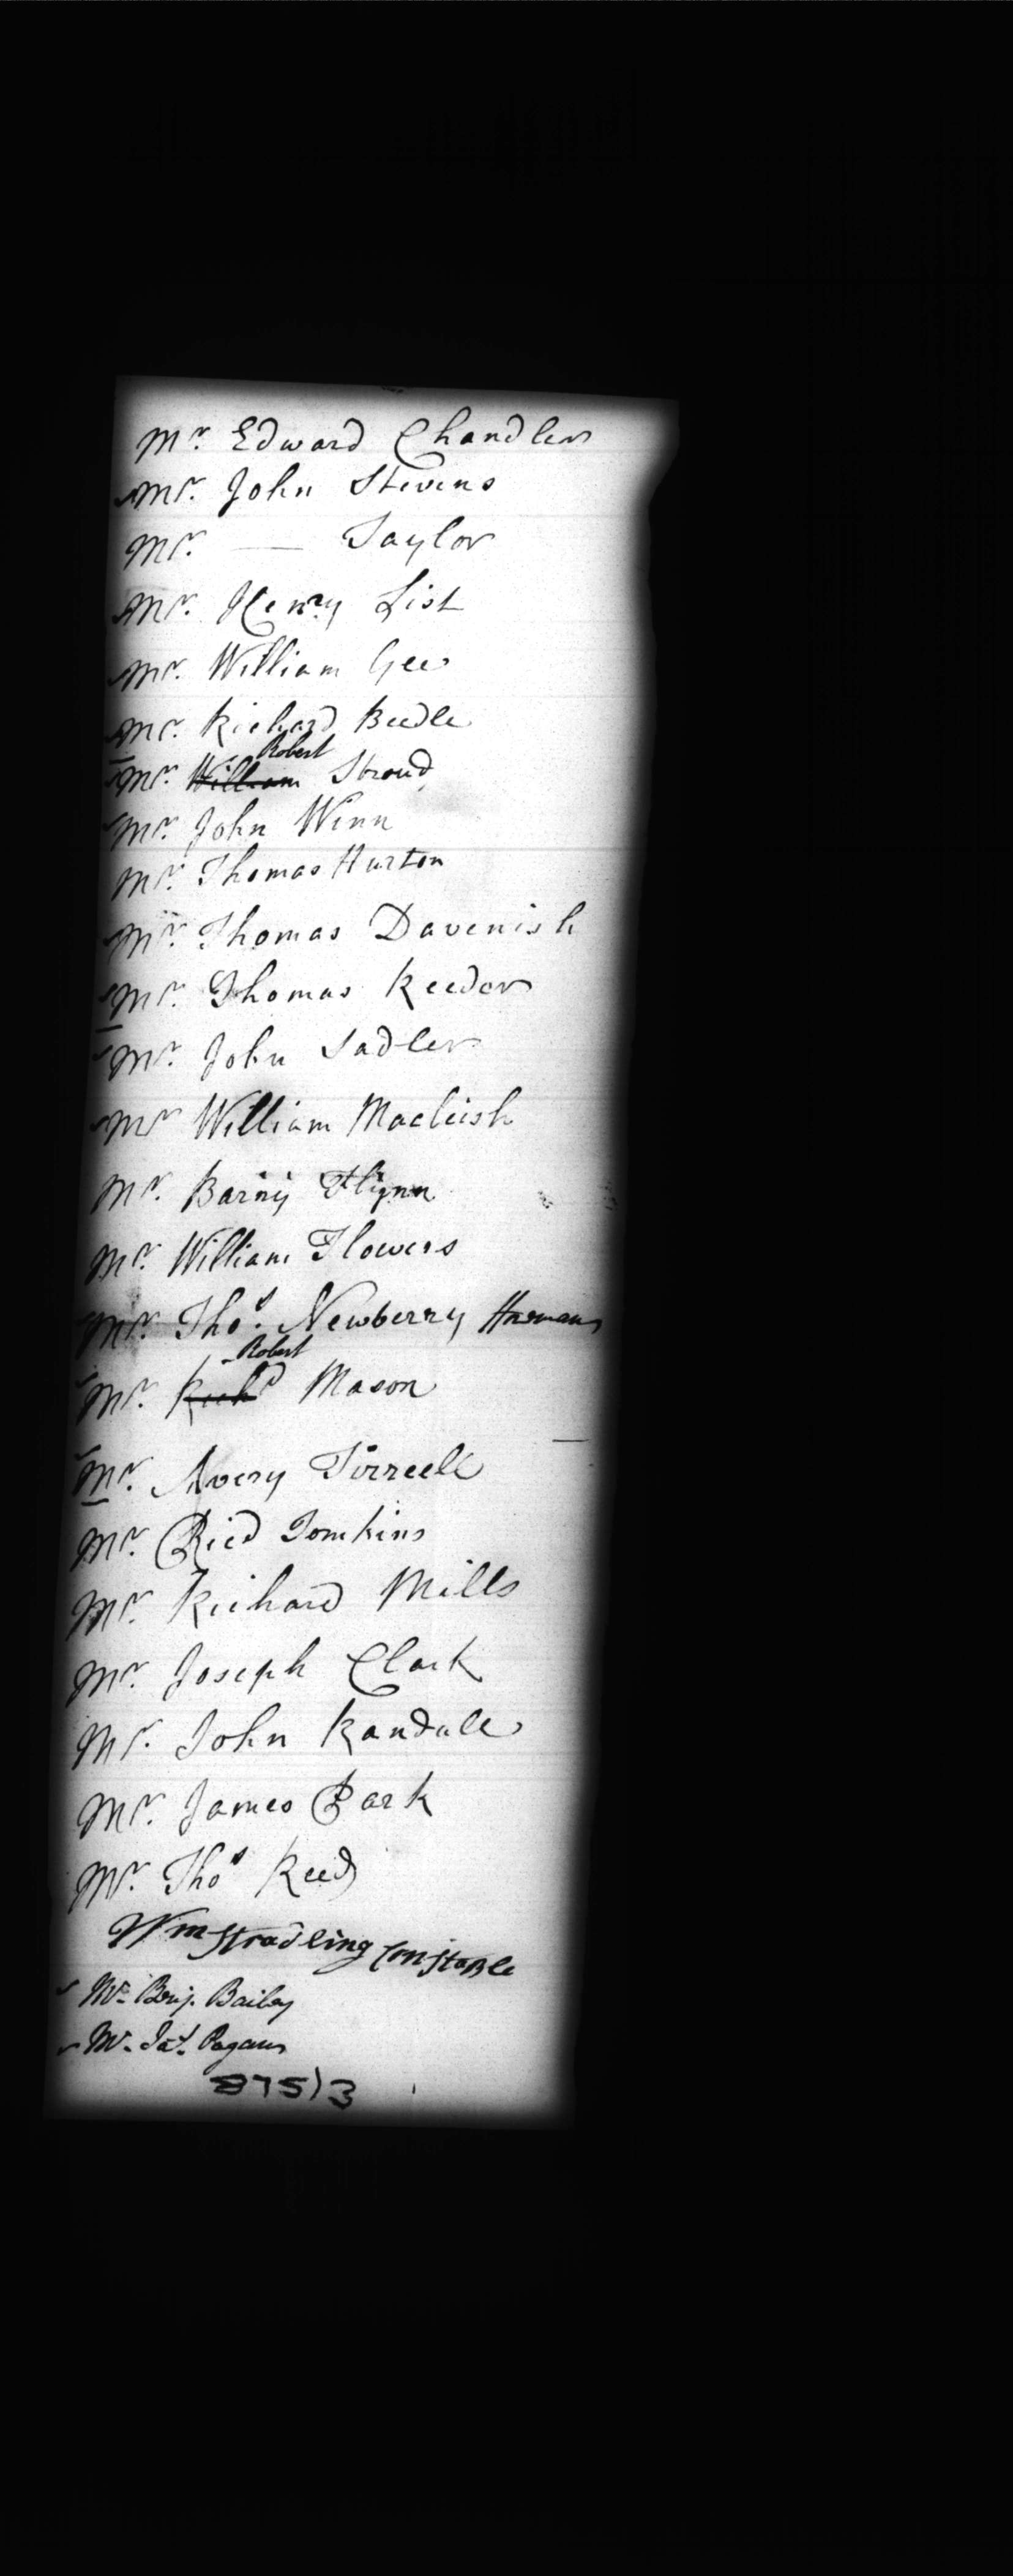 Mr. Edward Chandler
Mr. John Stevens
Mr. —— Taylor
Mr. Henry List
Mr. William Gee
Mr. Richard Beedle
Robert
Mr. William Stroud
Mr. John Winn
Mr. Thomas Hurton
Mr. Thomas Davenish
Mr. Thomas Reeder
Mr. John Sadler
Mr William Macleish
Mr. Barny Flynn
Mr. William Flowers
Mr. Thos. Newberry
Robert
Mr. Richd Mason
Mr. Avery Tirrell
Mr. Ricd Tomkins
Mr. Richard Mills
Mr. Joseph Clark
Mr. John Randall
Mr. James Park
Mr. Thos Reed
Wm Stradling Constable
Mr. Benj. Bailey
Mr. Jas. Pagan
875)3